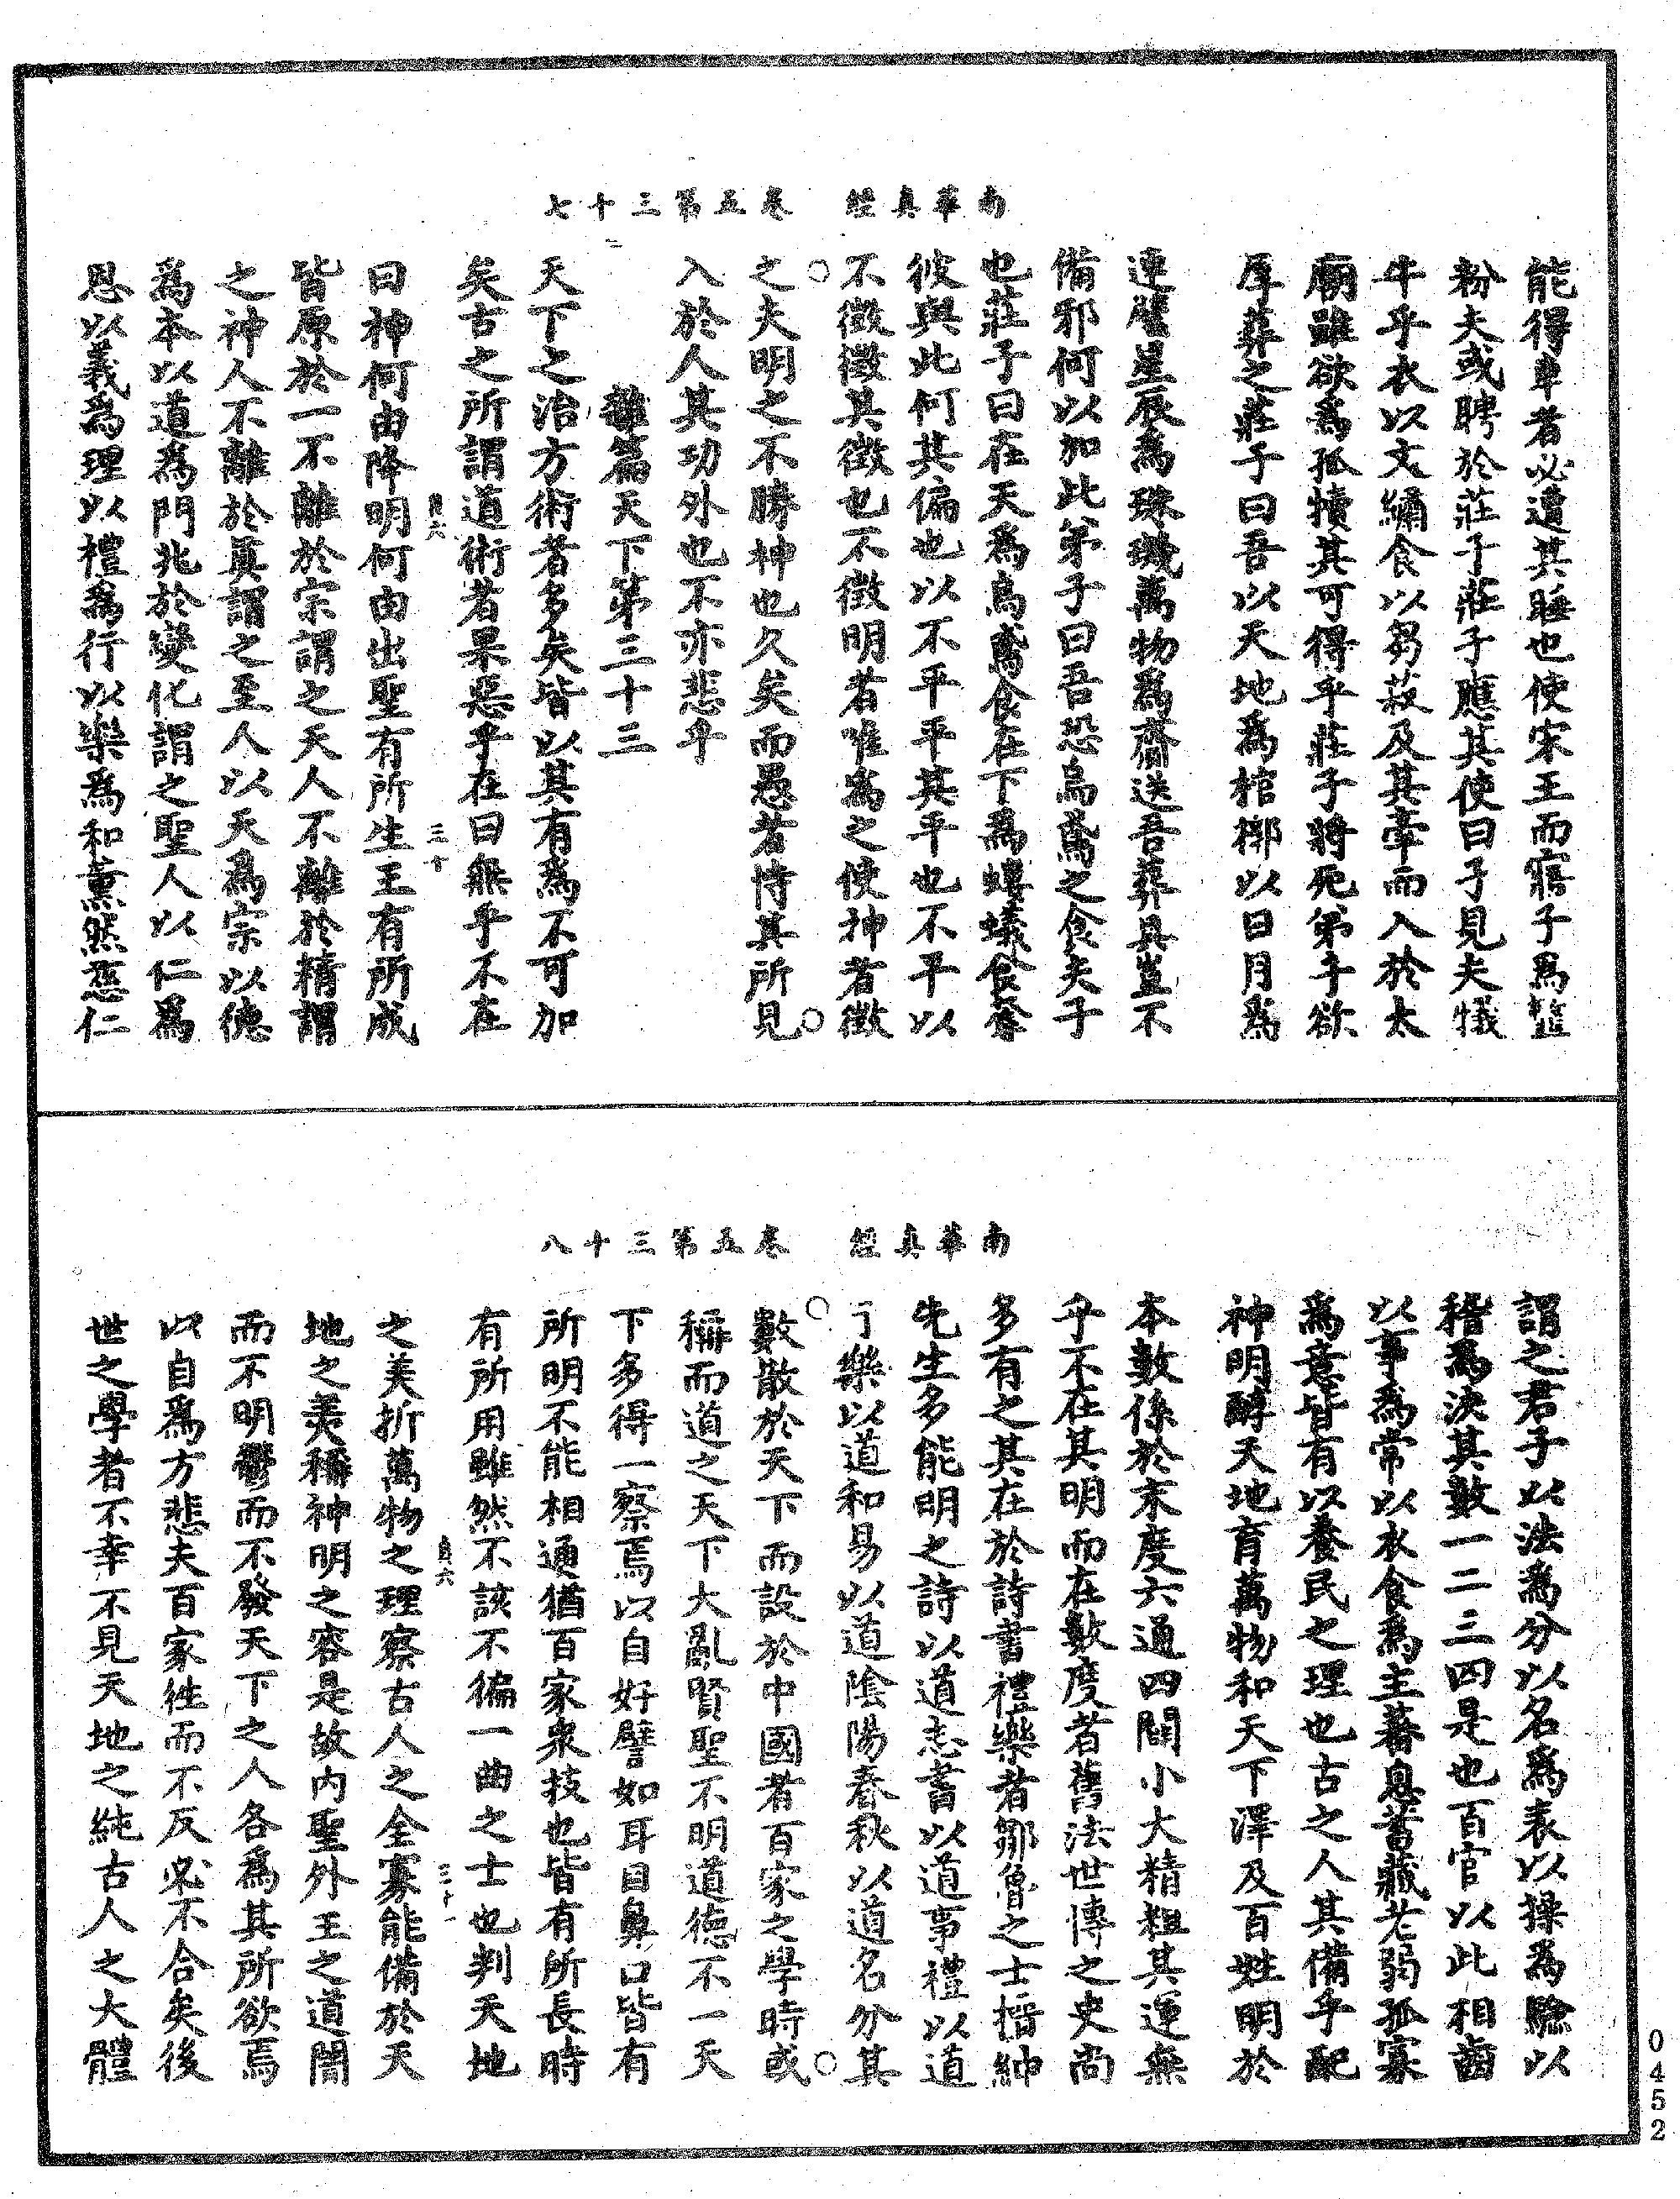 南華真經　卷五第三十七
能得車者必遭其睡也使宋王而寤子為韲
粉夫或聘於莊子莊子應其使曰子見夫犧
牛乎衣以文繡食以芻菽及其牽而入於太
廟雖欲為孤犢其可得乎莊子將死弟子欲
厚葬之莊子曰吾以天地為棺槨以日月為
連璧星辰為珠璣萬物為齎送吾葬具豈不
備邪何以加此弟子曰吾恐烏鳶之食夫子
也莊子曰在天為烏鳶食在下為螻蟻食奪
彼與此何其偏也以不平平其平也不平以
不徵徵其徵也不徵明者唯為之使神者徵
之夫明之不勝神也久矣而愚者恃其所見
入於人其功外也不亦悲乎
雜篇天下第三十三
天下之治方術者多矣皆以其有為不可加
矣古之所謂道術者果惡乎在曰無乎不在
貞六　三十
曰神何由降明何由出聖有所生王有所成
皆原於一不離於宗謂之天人不離於精謂
之神人不離於真謂之至人以天為宗以德
為本以道為門兆於變化謂之聖人以仁為
恩以義為理以禮為行以樂為和薰然慈仁
南華真經　卷五第三十八
謂之君子以法為分以名為表以操為驗以
稽為決其數一二三四是也百官以此相齒
以事為常以衣食為主蕃息畜藏老弱孤寡
為意皆有以養民之理也古之人其備乎配
神明醇天地育萬物和天下澤及百姓明於
本數係於末度六通四闢小大精粗其運無
乎不在其明而在數度者舊法世傳之史尚
多有之其在於詩書禮樂者鄒魯之士搢紳
先生多能明之詩以道志書以道事禮以道
行樂以道和易以道陰陽春秋以道名分其
數散於天下而設於中國者百家之學時或
稱而道之天下大亂賢聖不明道德不一天
下多得一察焉以自好譬如耳目鼻口皆有
所明不能相通猶百家衆技也皆有所長時
有所用雖然不該不徧一曲之士也判天地
貞六　三十一
之美折萬物之理察古人之全寡能備於天
地之美稱神明之容是故內聖外王之道闇
而不明鬱而不發天下之人各為其所欲焉
以自為方悲夫百家徃而不反必不合矣後
世之學者不幸不見天地之純古人之大體
0452